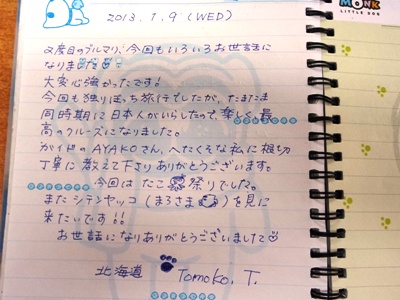 2013. 1. 9 (WED)
MONK
LITTLE DOG
2度目のブルマリ、今回もいろいろお世話に
なりました
大変心強かったです!
今回も独りぼっち旅行でしたが、たまたま
同時期に日本人がいらしたので、楽しく、最
高のクルーズになりました。
ガイドのAYAKOさん、へたくそな私に親切
丁寧に教えて下さりありがとうございます。
今回はたこ祭りでした。
またシテンヤッコ(まるさま)を見に
来たいです!!
お世話になりありがとうございました
北海道 Tomoko. T.